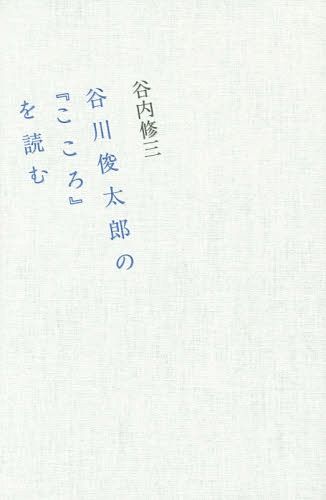 谷内修三
谷川俊太郎の
『こころ』
を読む